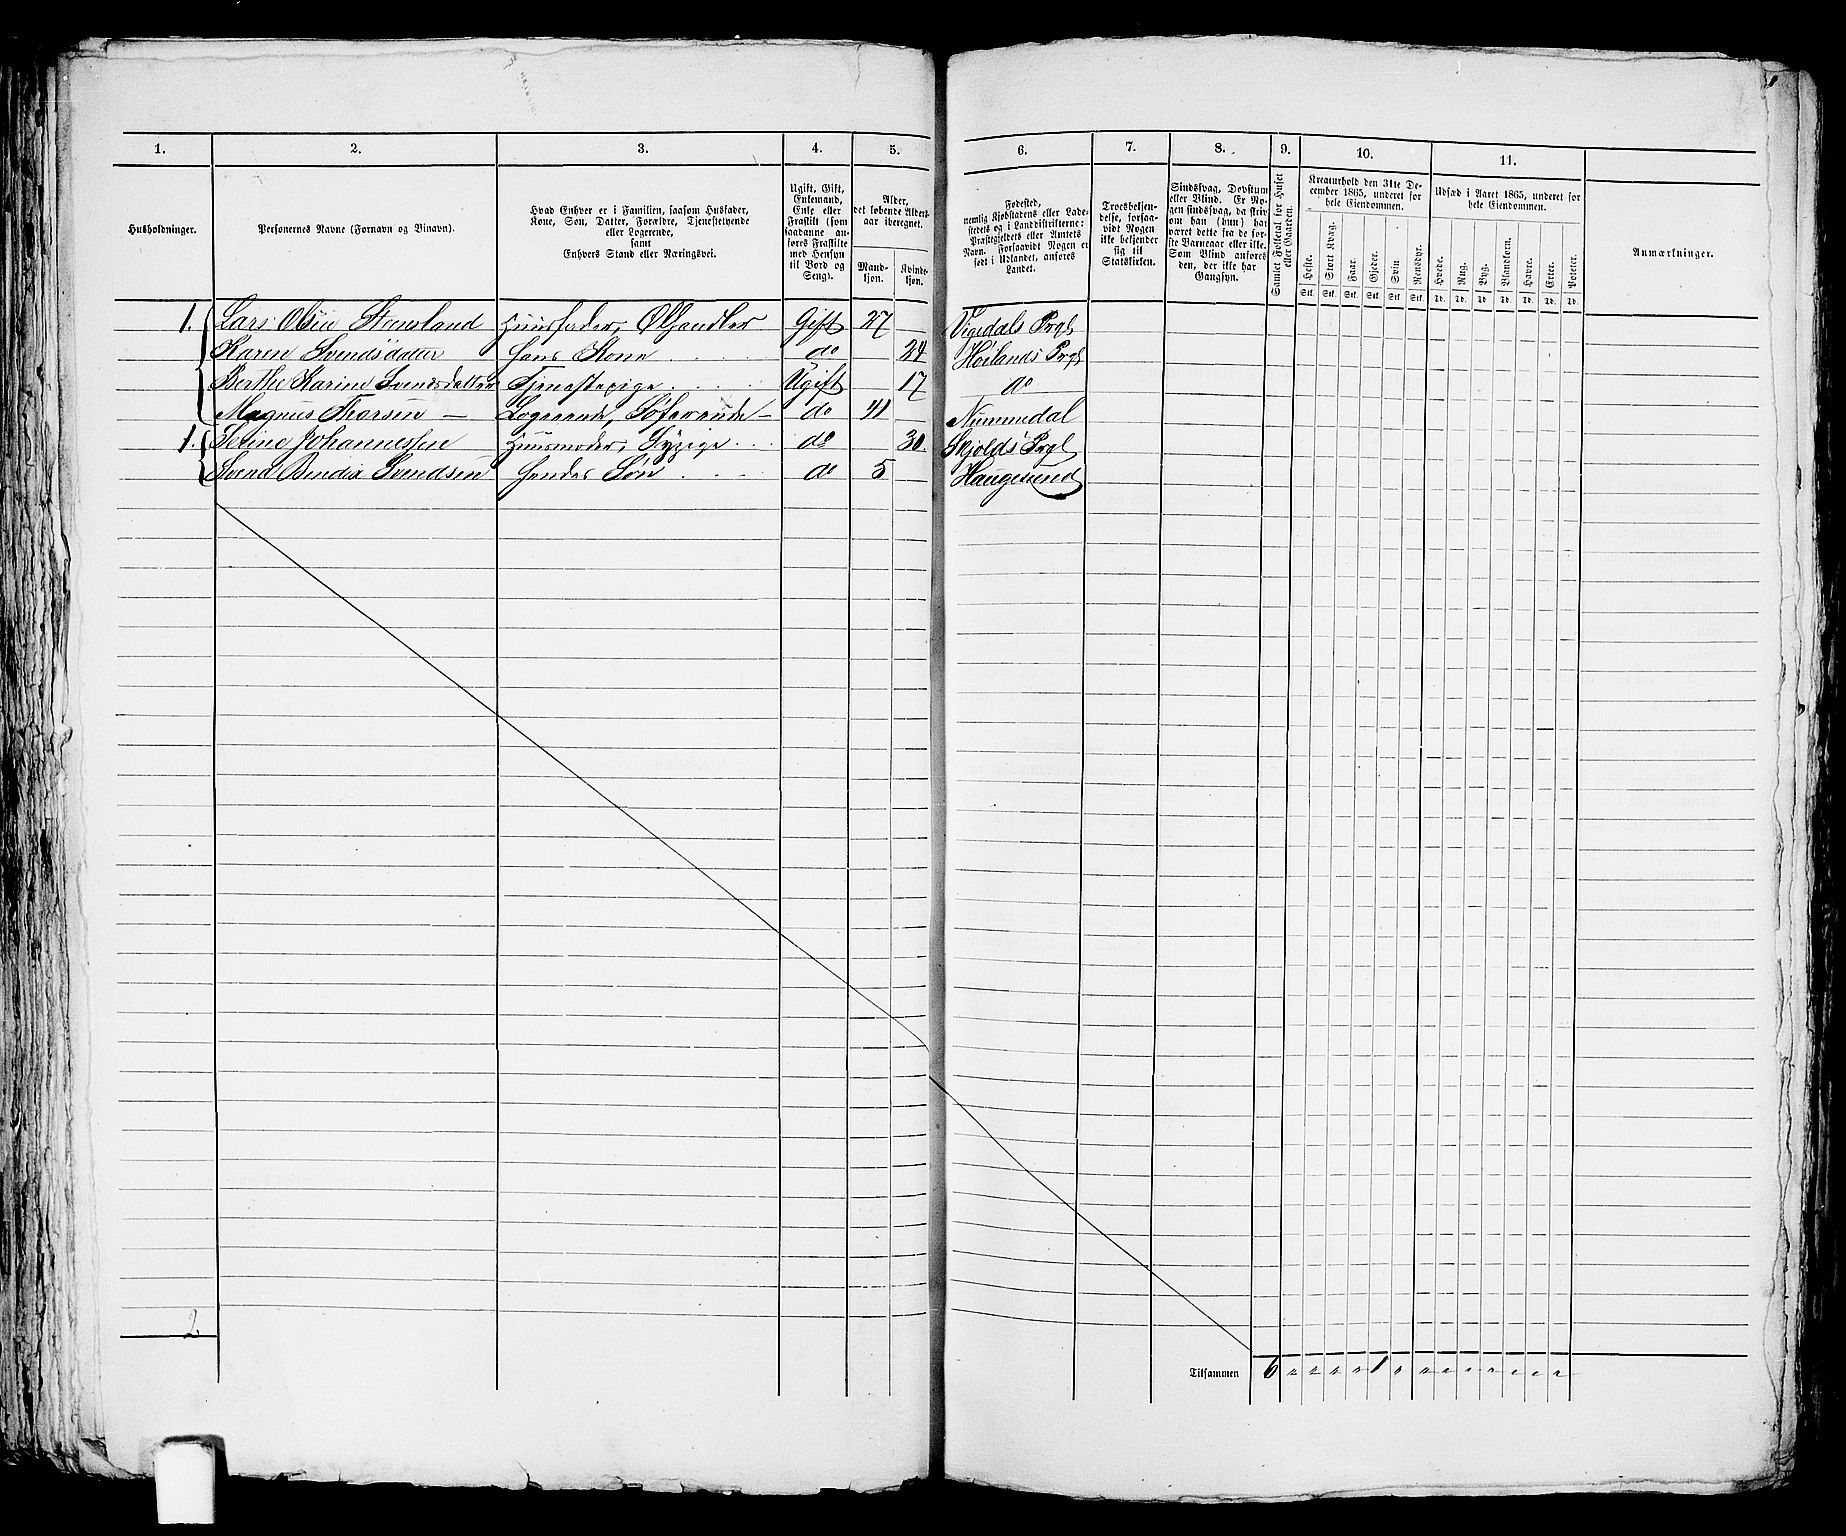 1. 2. 3. 4. 5. 6. 7. 8. 9. 10. 11.
Husholdninger.
Personernes Navne (Fornavn og Binavn).
Hvad Enhver er i Familien, saasom Husfader,
Kone, Søn, Datter, Forældre, Tjenestetyende
eller Logerende,
samt
Enhvers Stand eller Næringsvei.
Ugift, Gift,
Enkemand,
Enke eller
Fraskilt (som
saadanne an-
føres Fraskilte
med Hensyn
til Bord og
Seng).
Alder,
det løbende Alders-
aar iberegnet.
Mand-
kjøn.
Kvinde-
kjøn.
Fødested,
nemlig Kjøbstadens eller Lade-
stedets og i Landdistrikterne:
Præstegjeldets eller Amtets
Navn. Forsaavidt Nogen er
født i Udlandet, anføres
Landet.
Troesbekjen-
delse, forsaa-
vidt Nogen
ikke bekjender
sig til
Statskirken.
Sindssvag, Døvstum
eller Blind. Er No-
gen sindssvag, da skriv
om han (hun) har
været dette fra de før-
ste Barneaar eller ikke.
Som Blind anføres
den, der ikke har
Gangsyn.
Samlet Folketal for Huset
eller Gaarden.
Kreaturhold den 31te De-
cember 1865, underet for
hele Eiendommen.
Heste. Stort Kvæg. Faar. Gjeder. Svin. Rensdyr.
Stk. Stk. Stk. Stk. Stk. Stk.
Udsæd i Aaret 1865, underet for
hele Eiendommen.
Hvede. Rug. Byg. Blandkorn. Havre. Erter. Poteter.
Td. Td. Td. Td. Td. Td. Td.
Anmærkninger.
1. Lars Olsen Stensland Huusfader, Ølhandler Gift 27 Vigedals Prgl
Karen Svendsdatter Hans Kone do 24 Høilands Prgl
Berthe Karine Svendsdatter Tjenestepige Ugift 17 do
Magnus Thorsen Logerende, Søfarende do 41 Nummedal
1. Serine Johannessen Huusmoder, Sypige do 30. Skjolds Prgl
Svend Bendix Svendsen Hendes Søn do 5 Haugesund
2
Tilsammen 6 1